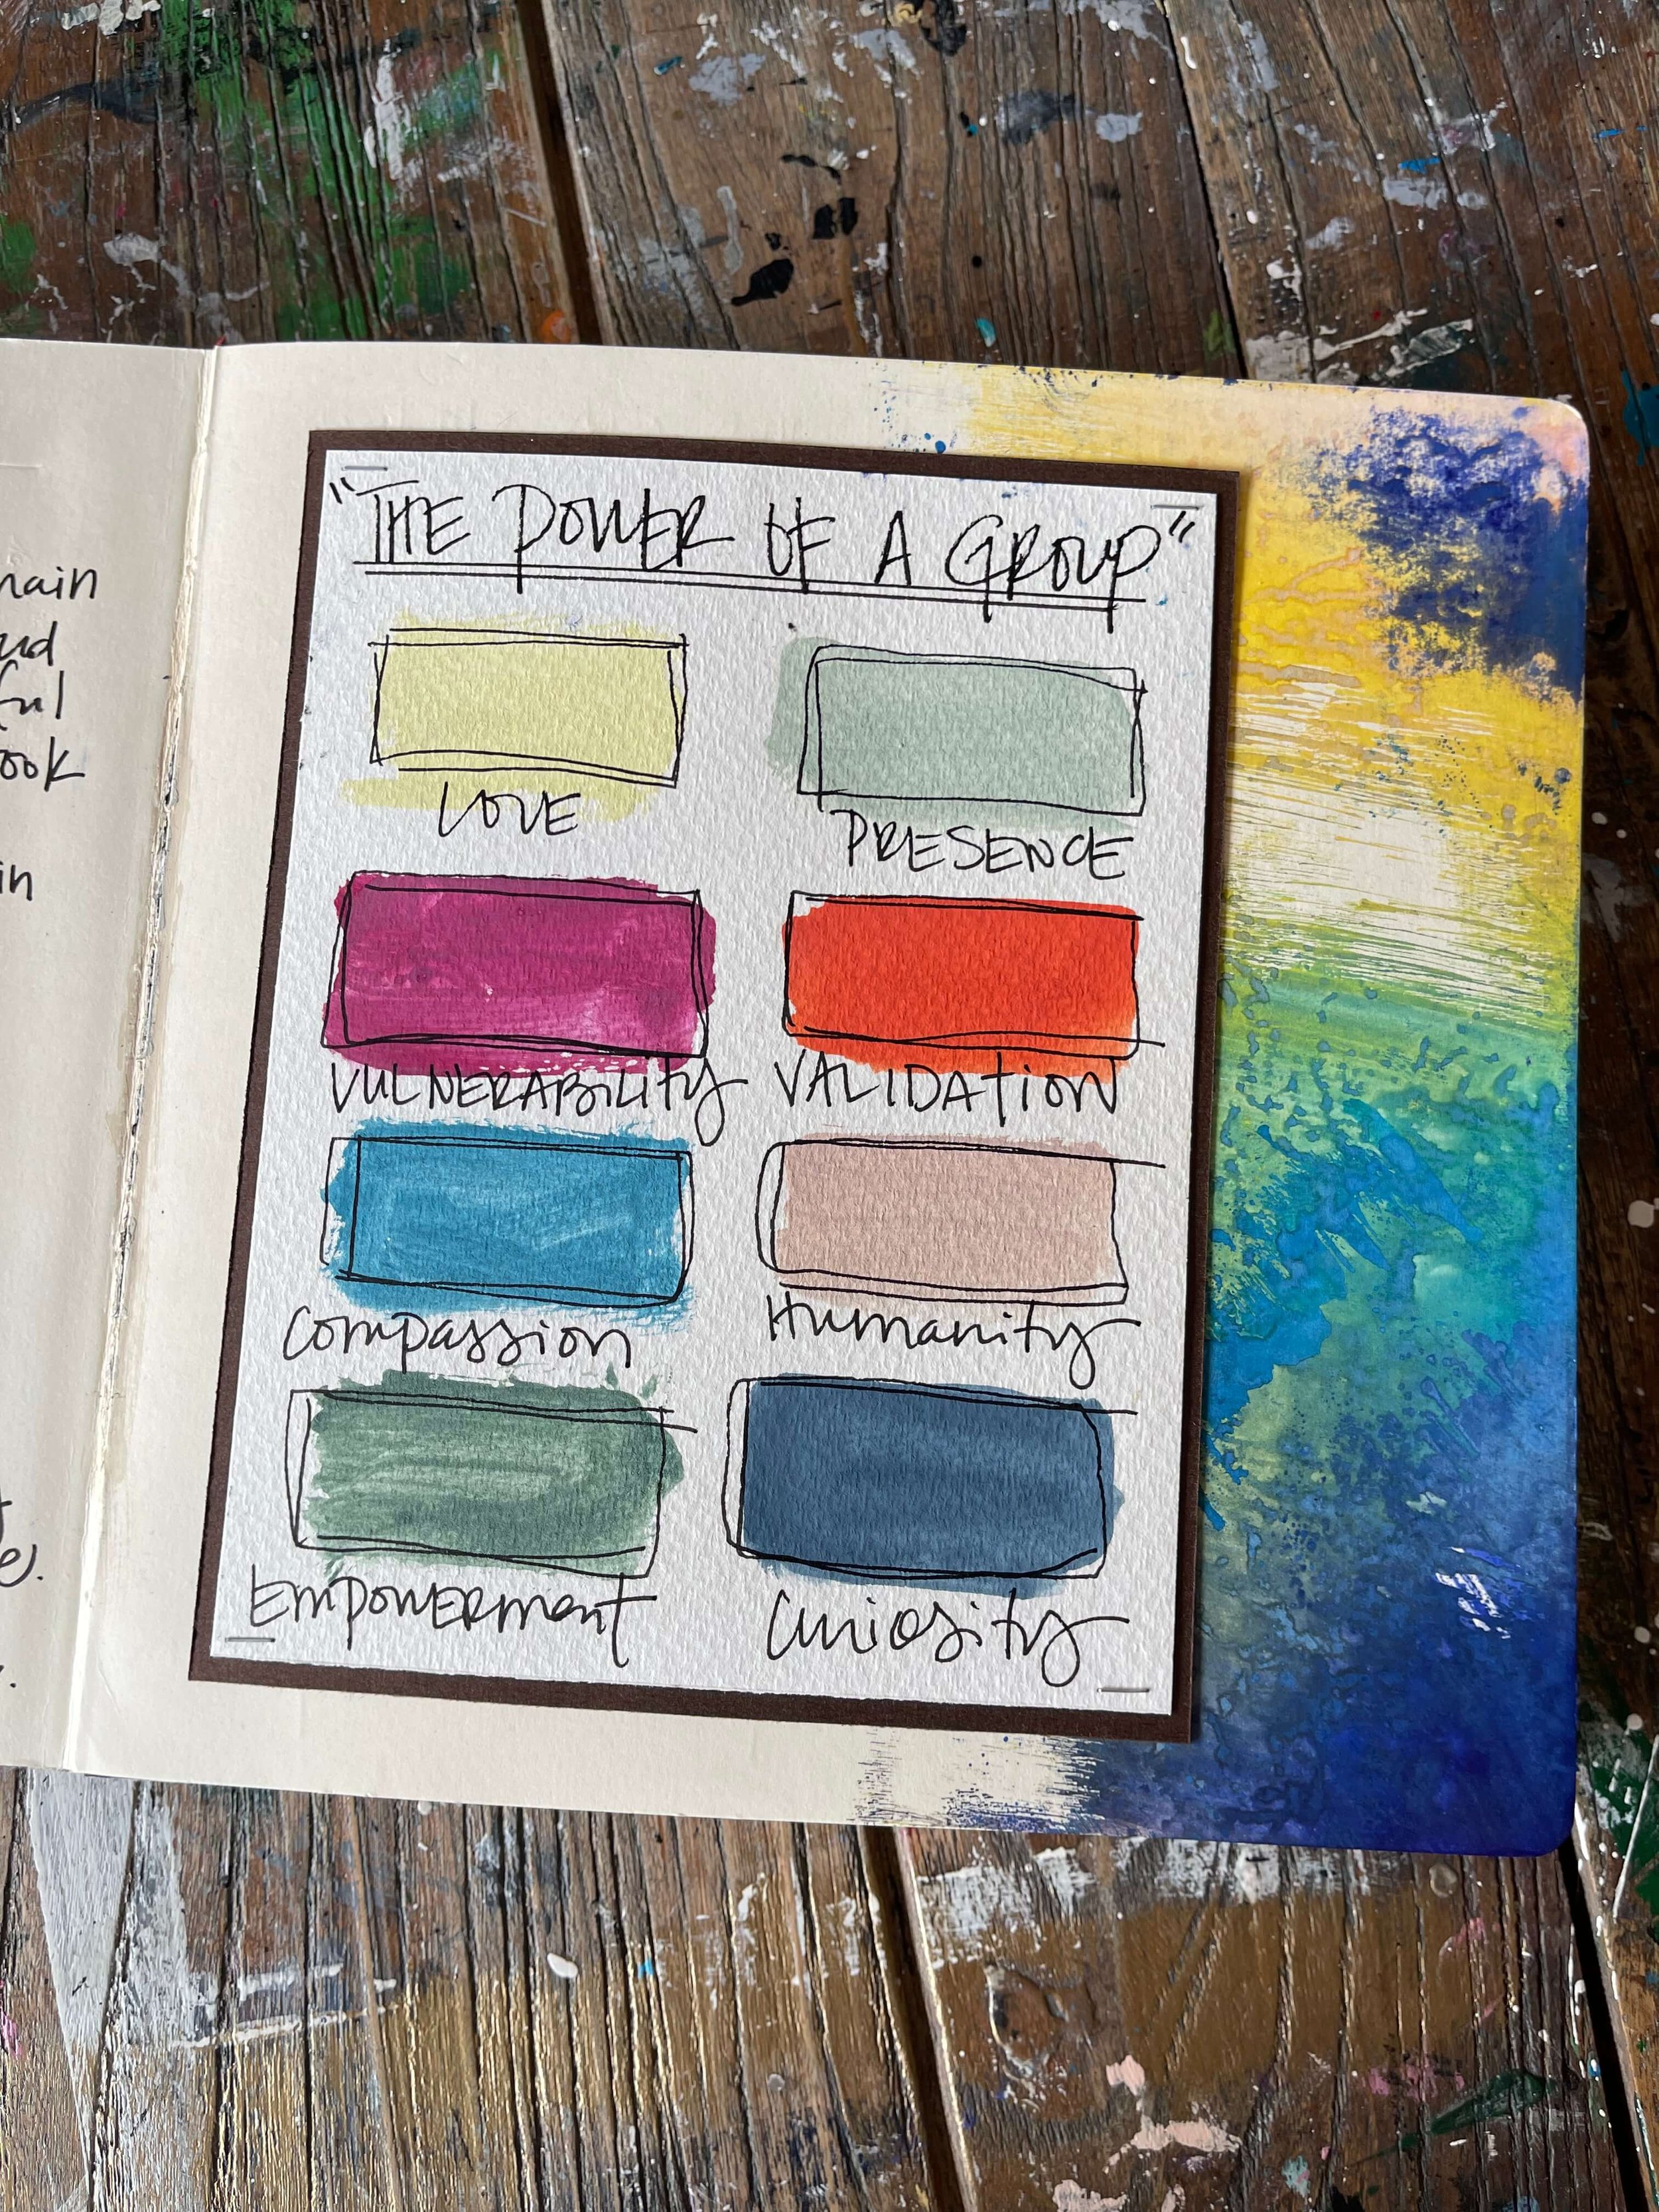 "THE POWER OF A GROUP"
LOVE
PRESENCE
VULNERABILITY
VALIDATION
Compassion
Humanity
EmPOWERment
Curiosity
ook
in